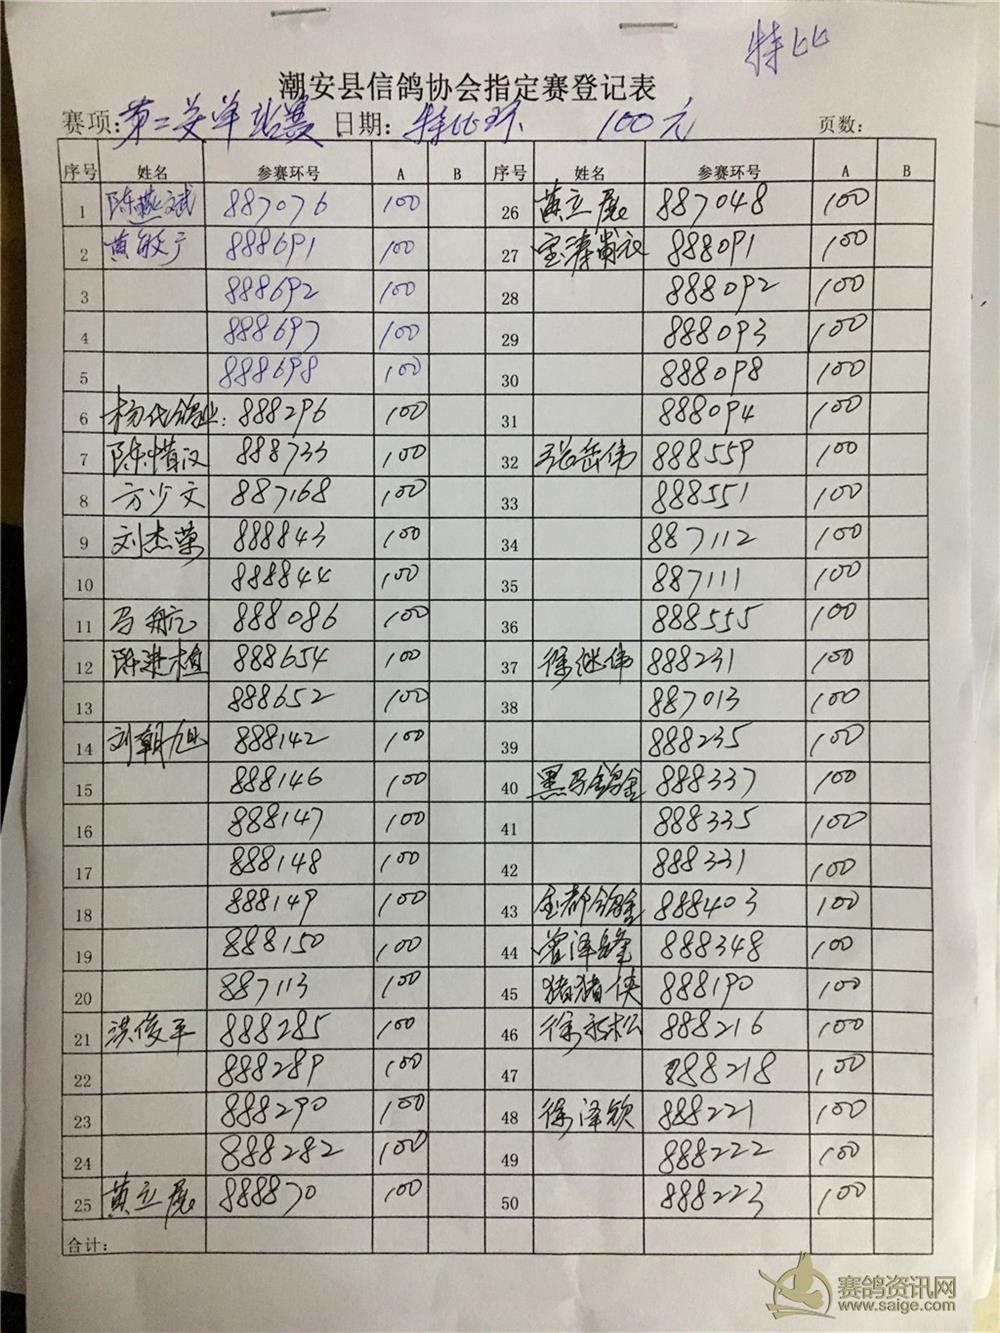 特比
潮安县信鸽协会指定赛登记表
赛项:第二关单站赛 日期:特比环 100元 页数:
序号 姓名 参赛环号 A B 序号 姓名 参赛环号 A B
1 陈燕斌 887076 100 26 黄立展 887048 100
2 黄敏广 888691 100 27 宝涛贵欣 888091 100
3 888692 100 28 888092 100
4 888697 100 29 888093 100
5 888698 100 30 888098 100
6 杨代鸽业: 888296 100 31 888094 100
7 陈惜汉 888733 100 32 张岳伟 888559 100
8 方少文 887168 100 33 888551 100
9 刘杰荣 888843 100 34 887112 100
10 888844 100 35 887111 100
11 马航 888086 100 36 888555 100
12 陈进植 888654 100 37 徐继伟 888231 100
13 888652 100 38 887013 100
14 刘朝旭 888142 100 39 888235 100
15 888146 100 40 黑马鸽舍 888337 100
16 888147 100 41 888335 100
17 888148 100 42 888331 100
18 888149 100 43 金都鸽舍 888403 100
19 888150 100 44 曾泽锋 888348 100
20 887113 100 45 猪猪侠 888190 100
21 洪俊平 888285 100 46 徐永松 888216 100
22 888289 100 47 888218 100
23 888290 100 48 徐泽钦 888221 100
24 888282 100 49 888222 100
25 黄立展 888870 100 50 888223 100
合计:
赛鸽资讯网
www.saige.com